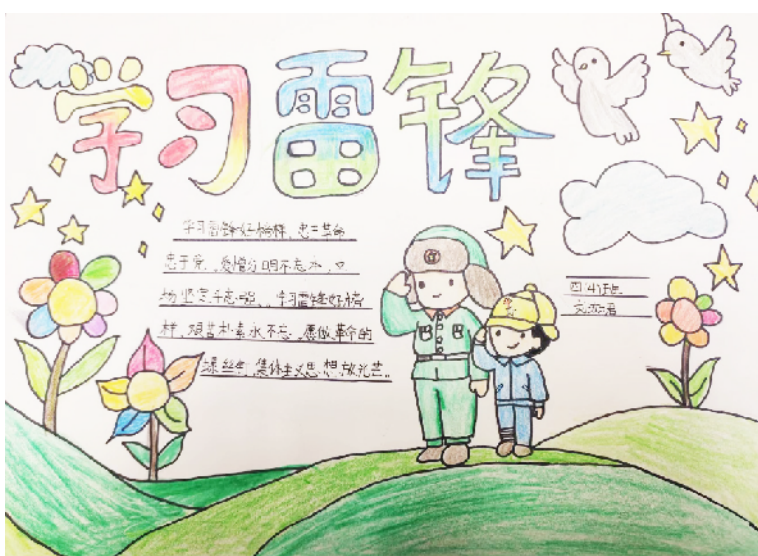 学习雷锋
学习雷锋好榜样,忠于革命
忠于党,爱憎分明不忘本,立
场坚定斗志强,学习雷锋好榜
样,艰苦朴素永不忘,愿做革命的
螺丝钉,集体主义思想放光芒。
四(4)班